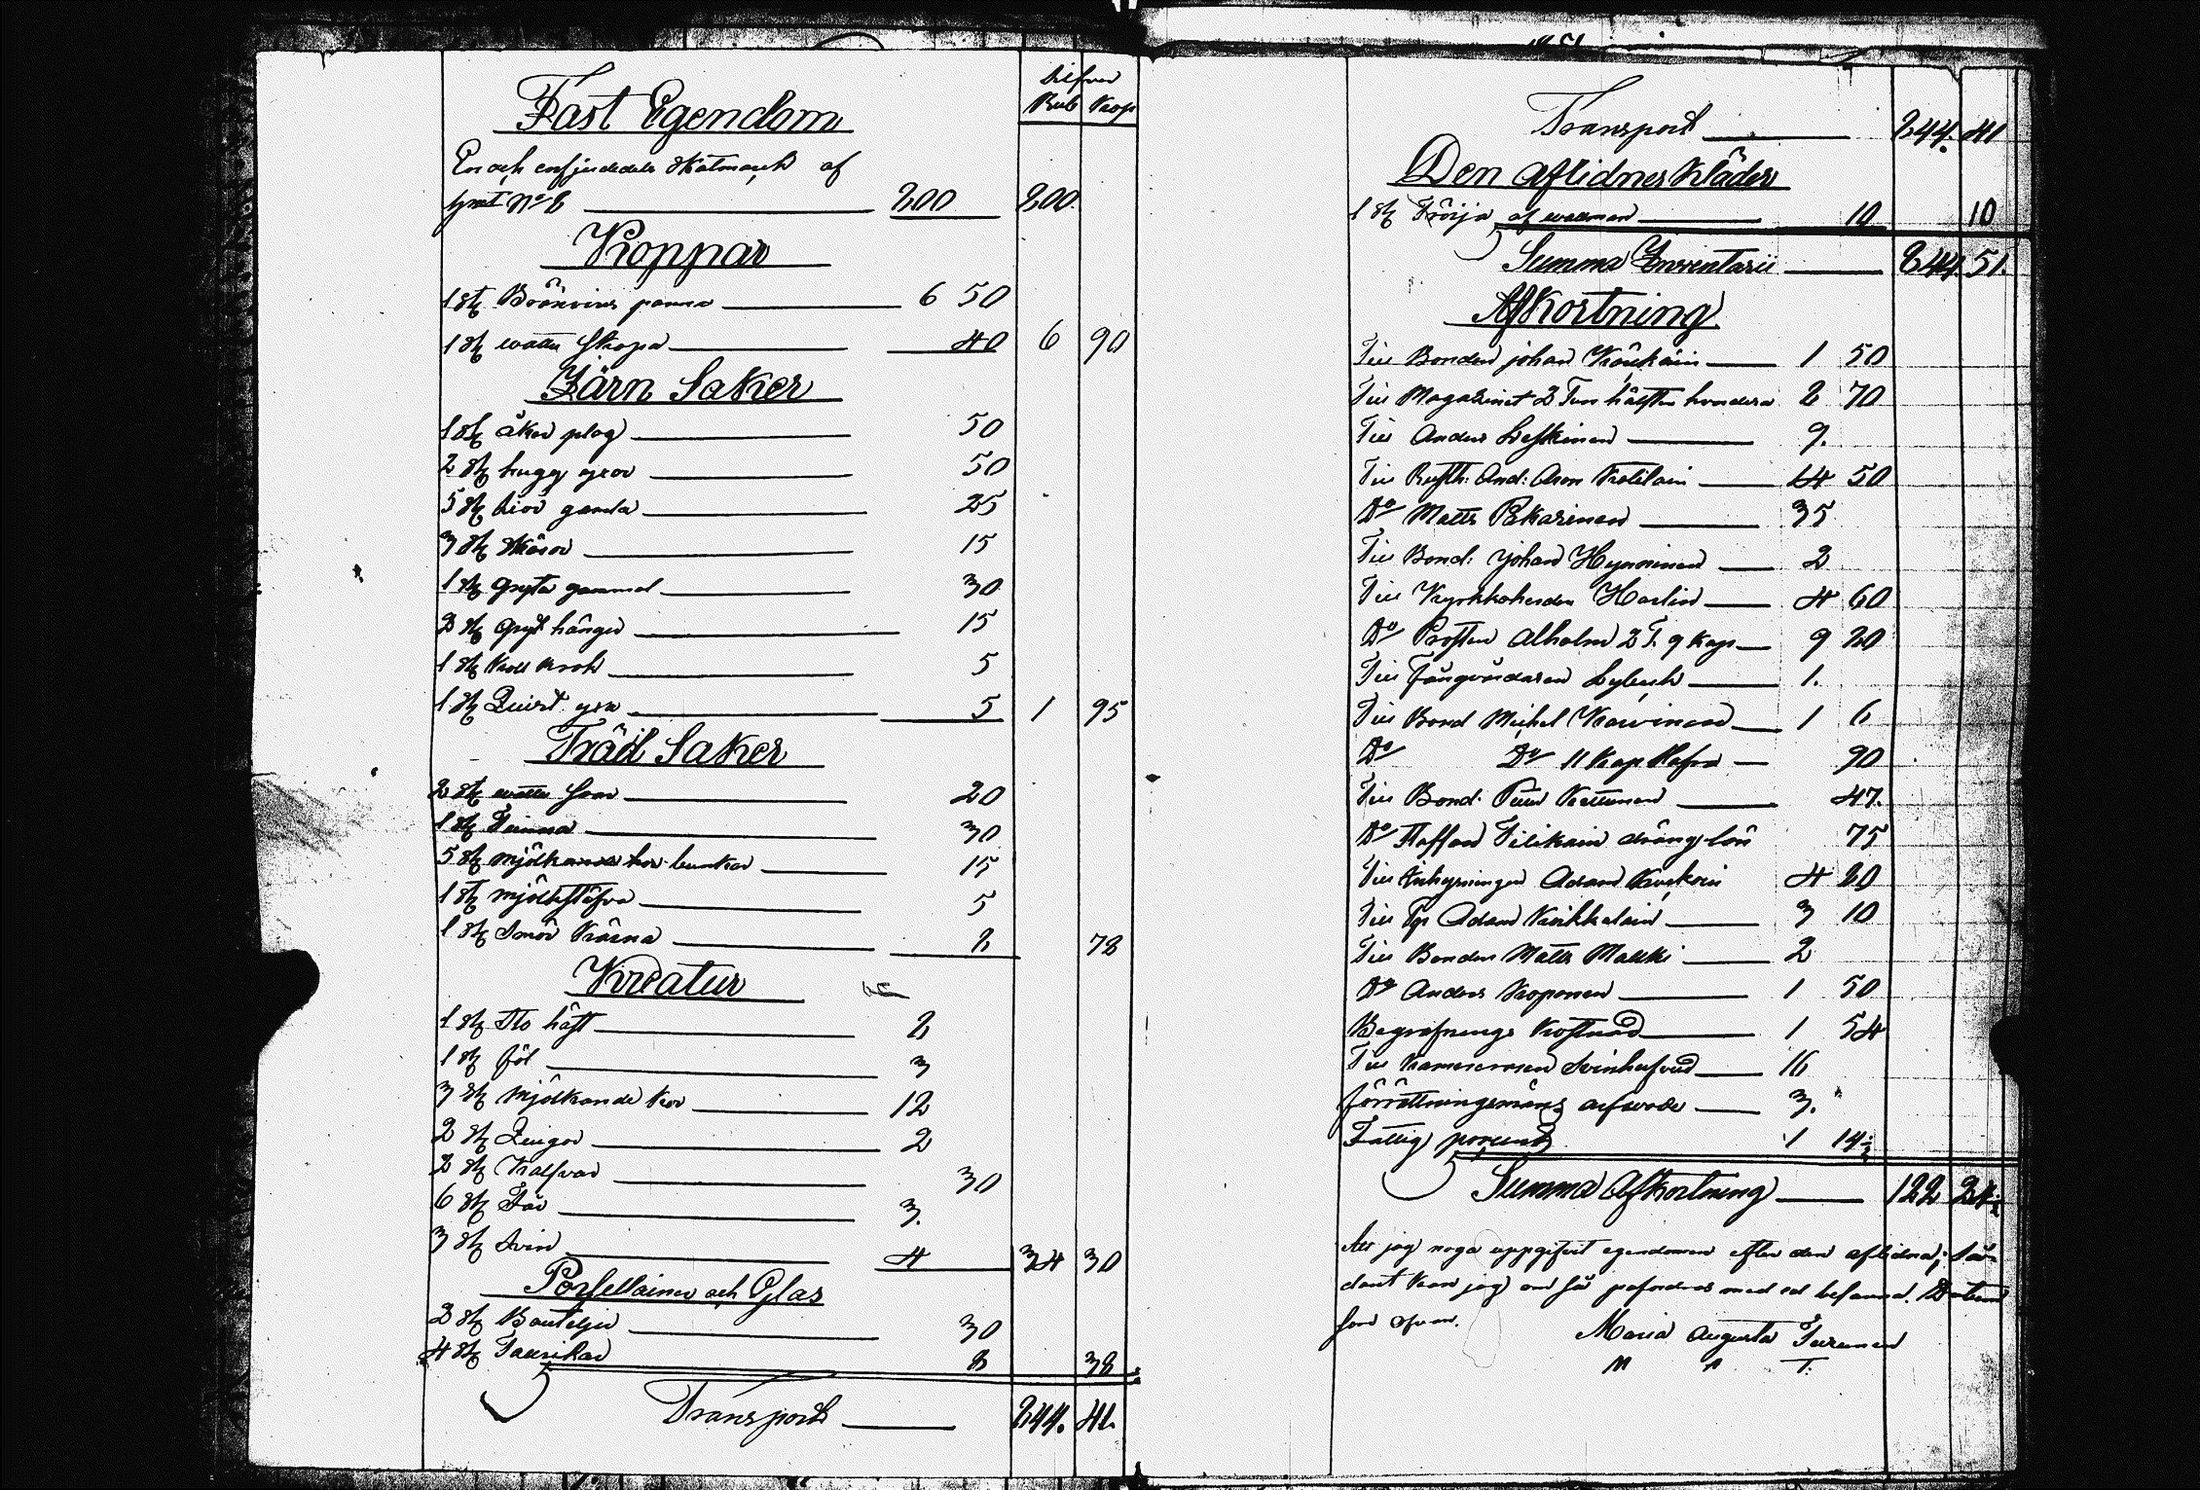 Silfver
Rub Kop
Fast Egendom
En och enfjerdedels skatmark af
hemt No 6 200 200
Koppar
1 st Bränvins panna 6 50
1 st watten skopa 40 6 90
Järn Saker
1 st åker plog 50
2 st hugg yxor 50
5 st liror gamla 25
3 st skäror 15
1 st gryta gammal 30
2 st gryt hänger 15
1 st krok 5
1 st yxa 5 1 95
Träd Saker
2 st watten såar 20
1 st Tinna 30
5 st mjölk bunkar 15
1 st mjölkstäfva 5
1 st Smör Kärna 8 78
Kreatur
1 st Sto häst 2
1 st föl 3
3 st mjölkande kor 12
2 st Quigor 2
2 st Kalfvar 30
6 st Får 3.
3 st Svin 4 34 30
Porsellainer och Glas
2 st Bouteljer 30
4 st Tallrikar 8 38
Transport 244. 41.
Transport 244. 41
Den aflidnes Kläder
1 st Tröija af wallman 10 10
Summa Inventarii 244 51.
Afkortning
Till Bonden johan 1 50
Till Magazinet 2 Tun hälften hvardera 2 70
Till Anders Leskinen 9.
Till Rusth: And: Aron 14 50
Do Matts Pekarinen 35
Till Bond. johan Hynninen 2
Till Kyrkkoherden Harlin 4 60
Do Prosten Alholm 2 T. 9 kap 9 20
Till Fångvärdaren 1.
Till Bond Michel Karvinen 1 6
Do Do 11 Kap Hafra 90
Till Bond. Petter 47.
Do Staffan dräng lön 75
Till Inhysningen Adam 4 20
Till Adam 3 10
Till Bonden Matts 2
Do Anders Koponen 1 50
Begrafnings Kostnad 1 54
Till Kamereraren Svinhufvud 16
förrättningsmäns arfvode 3.
Fattig procent 1 14 1/2
Summa Afkortning 122 24 1/2
Att jag noga uppgifvit egendomen efter den aflidna; så-
dant kan jag om så pafordras med ed befanna. Datum
som ofvan.
Maria Augusta Turunen
M A T.